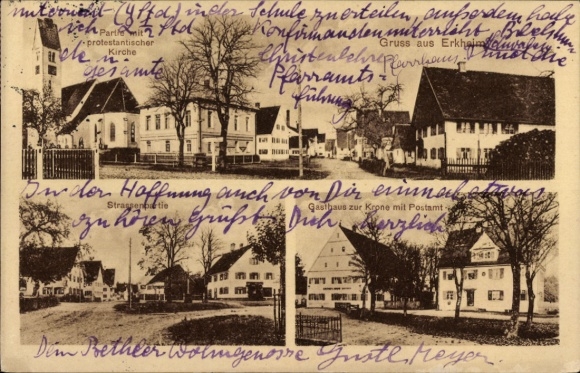 unterricht (4 Std) in der Schule zu erteilen, außerdem habe
ich 2 Std Konfirmandenunterricht, Bibelstunde
Partie mit
protestantischer
Kirche
Gruss aus Erkheim
Christenlehre
Pfarrhaus
gesamte Pfarramts-
führung
In der Hoffnung auch von Dir einmal etwas
Strassenpartie
Gasthaus zur Krone mit Postamt
zu hören grüßt Dich herzlich
Dein Betheler Wohngenosse Gustl. Meyer.